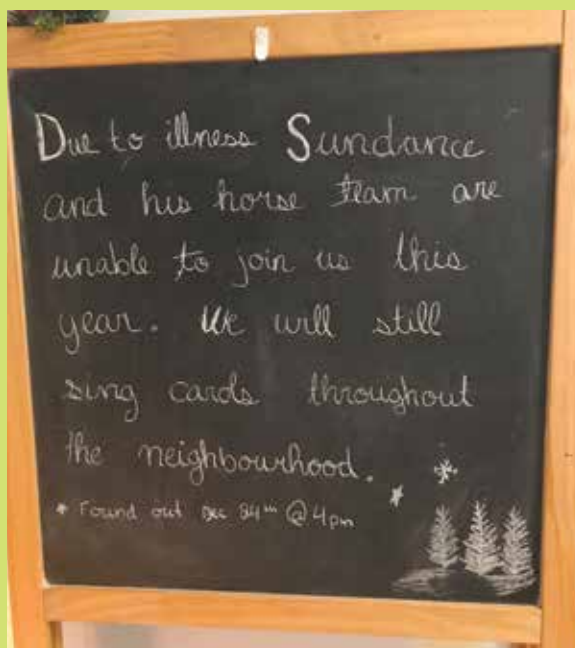 Due to illness Sundance
and his horse team are
unable to join us this
year. We will still
sing carols throughout
the neighbourhood.
* Found out Dec 24th @ 4pm